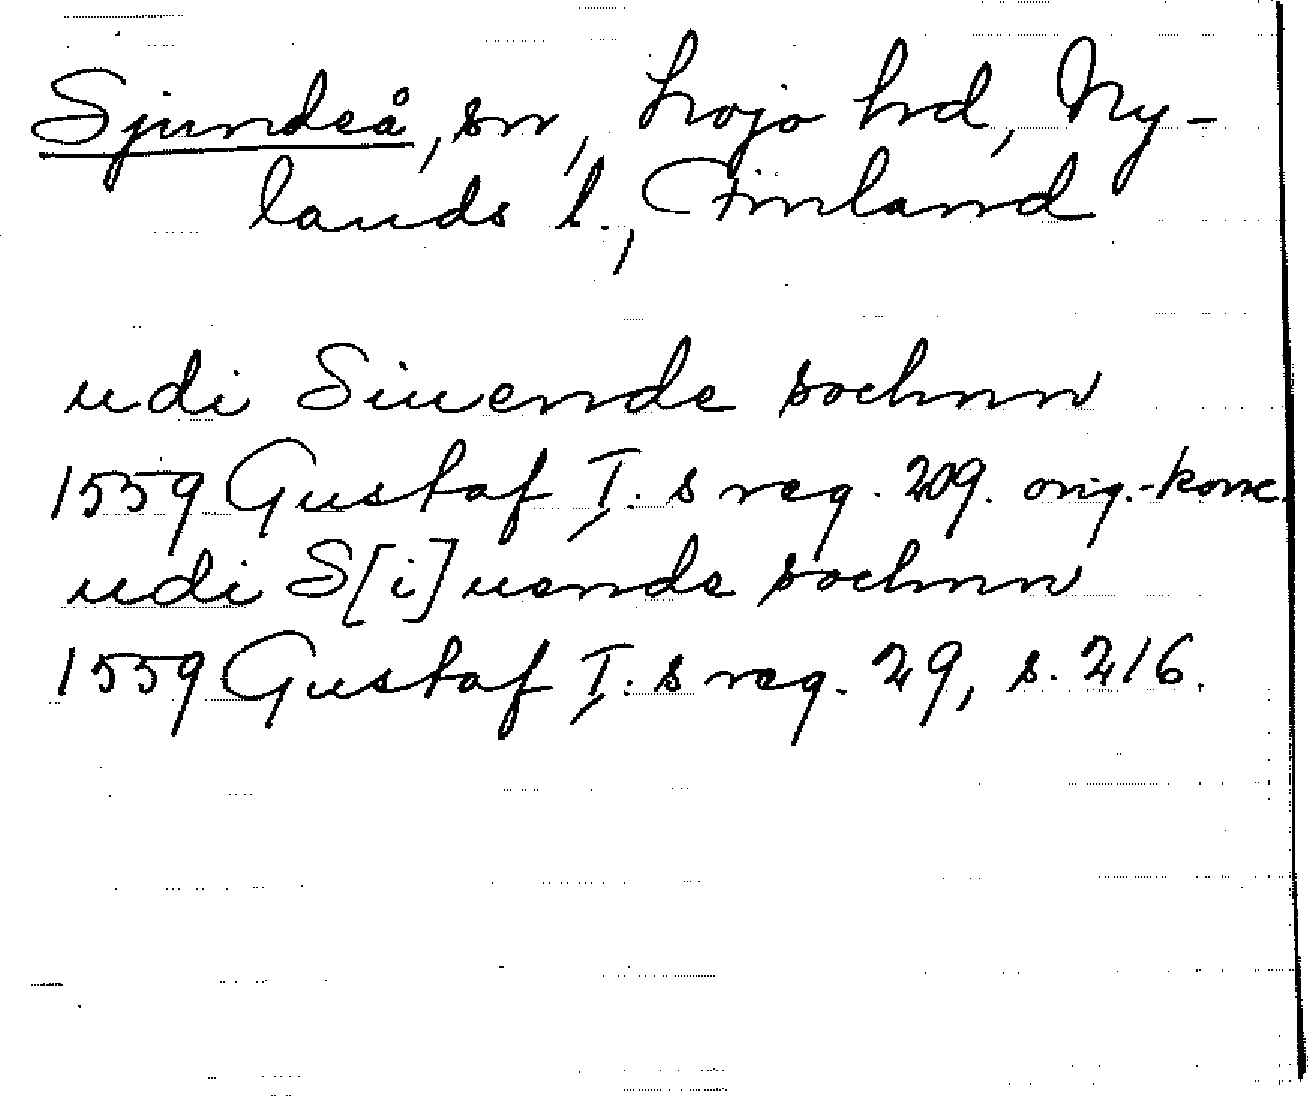 Sjundeå, sn, Lojo hd, Ny-
lands l., Finland
udi Siuende sochnn
1559 Gustaf I:s reg. 209. orig.-konc.
udi S[i]uende sochnn
1559 Gustaf I:s reg. 29, s. 216.